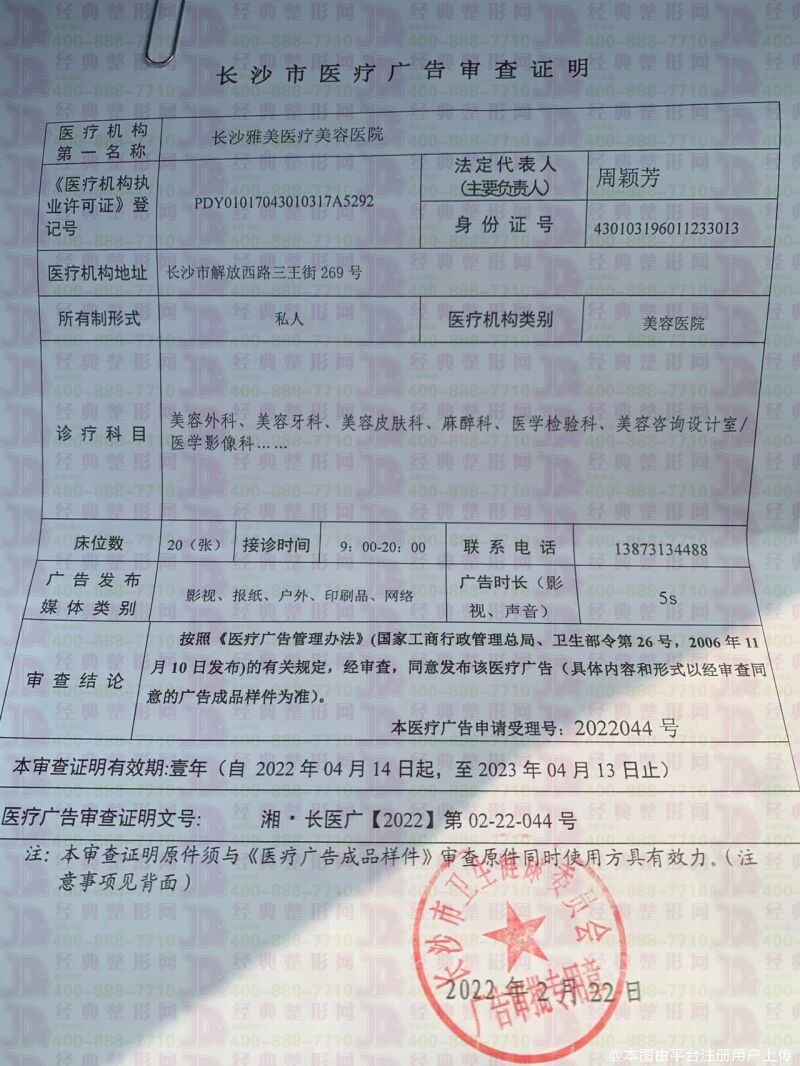 长沙市医疗广告审查证明
医疗机构
第一名称
长沙雅美医疗美容医院
《医疗机构执
业许可证》登
记号
PDY01017043010317A5292
法定代表人
(主要负责人)
周颖芳
身份证号
430103196011233013
医疗机构地址
长沙市解放西路三王街 269 号
所有制形式
私人
医疗机构类别
美容医院
诊疗科目
美容外科、美容牙科、美容皮肤科、麻醉科、医学检验科、美容咨询设计室/
医学影像科……
床位数
20（张）
接诊时间
9：00-20：00
联系电话
13873134488
广告发布
媒体类别
影视、报纸、户外、印刷品、网络
广告时长（影
视、声音）
5s
审查结论
按照《医疗广告管理办法》(国家工商行政管理总局、卫生部令第 26 号，2006 年 11
月 10 日发布)的有关规定，经审查，同意发布该医疗广告（具体内容和形式以经审查同
意的广告成品样件为准）。
本医疗广告申请受理号：2022044 号
本审查证明有效期:壹年（自 2022 年 04 月 14 日起，至 2023 年 04 月 13 日止）
医疗广告审查证明文号:
湘·长医广【2022】第 02-22-044 号
注：本审查证明原件须与《医疗广告成品样件》审查原件同时使用方具有效力。（注
意事项见背面）
长沙市卫生健康委员会
2022 年 2 月 22 日
广告审批专用章
经典整形网
400-888-7710
@本图由平台注册用户上传